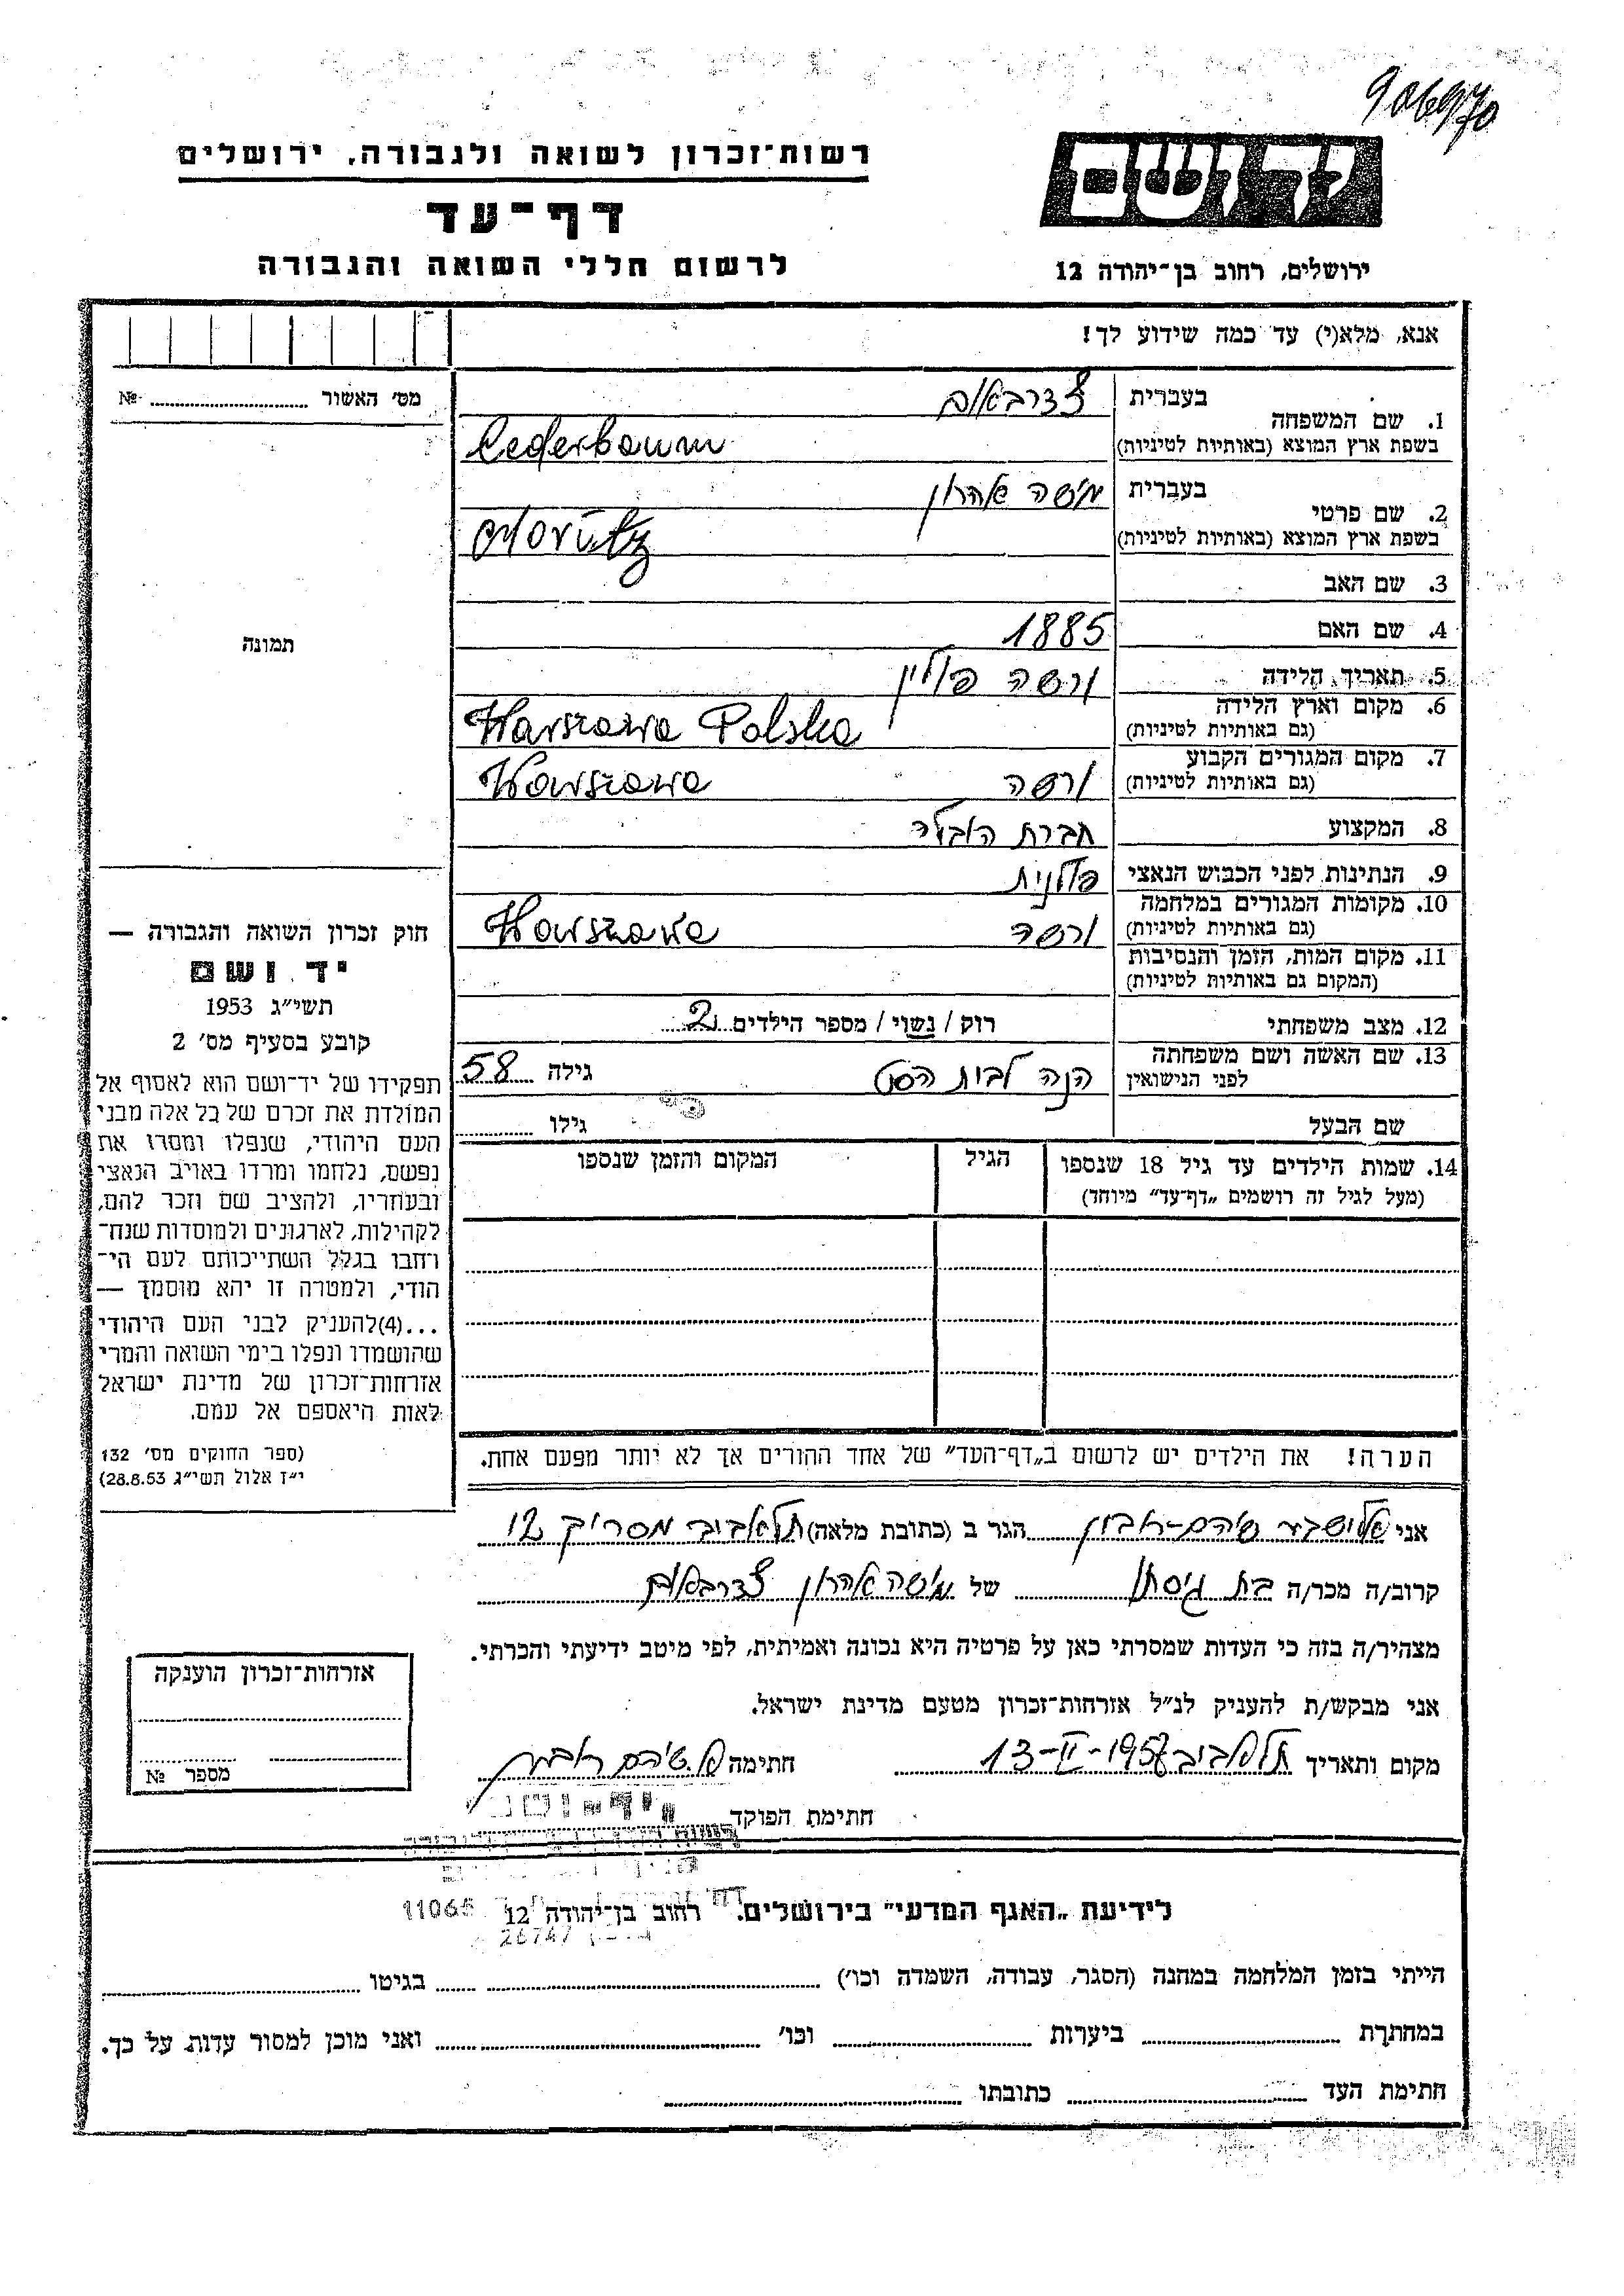 906970
רשות־זכרון לשואה ולגבורה, ירושלים
דף־עד
לרשום חללי השואה והגבורה
ידושם
ירושלים, רחוב בן־יהודה 12
אנא, מלא(י) עד כמה שידוע לך!
מס׳ האשור № 
1. שם המשפחה בעברית צדרבאום
בשפת ארץ המוצא (באותיות לטיניות) Cederbaum
2. שם פרטי בעברית משה אהרון
בשפת ארץ המוצא (באותיות לטיניות) Moritz
3. שם האב
4. שם האם
1885
5. תאריך הלידה
ורשה פולין
6. מקום וארץ הלידה
(גם באותיות לטיניות) Warszawa Polska
7. מקום המגורים הקבוע
(גם באותיות לטיניות) ורשה Warszawa
8. המקצוע חברת הובלה
9. הנתינות לפני הכבוש הנאצי פולנית
10. מקומות המגורים במלחמה
(גם באותיות לטיניות) ורשה Warszawa
11. מקום המות, הזמן והנסיבות
(המקום גם באותיות לטיניות)
12. מצב משפחתי רוק / נשוי / מספר הילדים 2
13. שם האשה ושם משפחתה
לפני הנישואין הנה לבית גילה 58
שם הבעל גילו
14. שמות הילדים עד גיל 18 שנספו הגיל המקום והזמן שנספו
(מעל לגיל זה רושמים „דף־עד” מיוחד)
הערה! את הילדים יש לרשום ב„דף־העד” של אחד ההורים אך לא יותר מפעם אחת.
תמונה
חוק זכרון השואה והגבורה —
יד ושם
תשי״ג 1953
קובע בסעיף מס׳ 2
תפקידו של יד־ושם הוא לאסוף אל
המולדת את זכרם של כל אלה מבני
העם היהודי, שנפלו ומסרו את
נפשם, נלחמו ומרדו באויב הנאצי
ובעוזריו, ולהציב שם וזכר להם,
לקהילות, לארגונים ולמוסדות שנח־
רבו בגלל השתייכותם לעם הי־
הודי, ולמטרה זו יהא מוסמך —
...(4)להעניק לבני העם היהודי
שהושמדו ונפלו בימי השואה והמרי
אזרחות־זכרון של מדינת ישראל
לאות היאספם אל עמם.
(ספר החוקים מס׳ 132
י״ז אלול תשי״ג 28.8.53)
אני אלישבע שוהם־ הגר ב (כתובת מלאה) תל אביב מסריק 12
קרוב/ה מכר/ה בת גיסתו של משה אהרון צדרבאום
מצהיר/ה בזה כי העדות שמסרתי כאן על פרטיה היא נכונה ואמיתית, לפי מיטב ידיעתי והכרתי.
אני מבקש/ת להעניק לנ״ל אזרחות־זכרון מטעם מדינת ישראל.
מקום ותאריך תל אביב 13-II-195 חתימה א. שוהם
חתימת הפוקד
אזרחות־זכרון הוענקה
מספר №
יד־ושם
לידיעת „האגף המדעי” בירושלים. רחוב בן־יהודה 12 11065
26747
הייתי בזמן המלחמה במחנה (הסגר, עבודה, השמדה וכו׳) בגיטו
במחתרת ביערות וכו׳ ואני מוכן למסור עדות על כך.
חתימת העד כתובתו